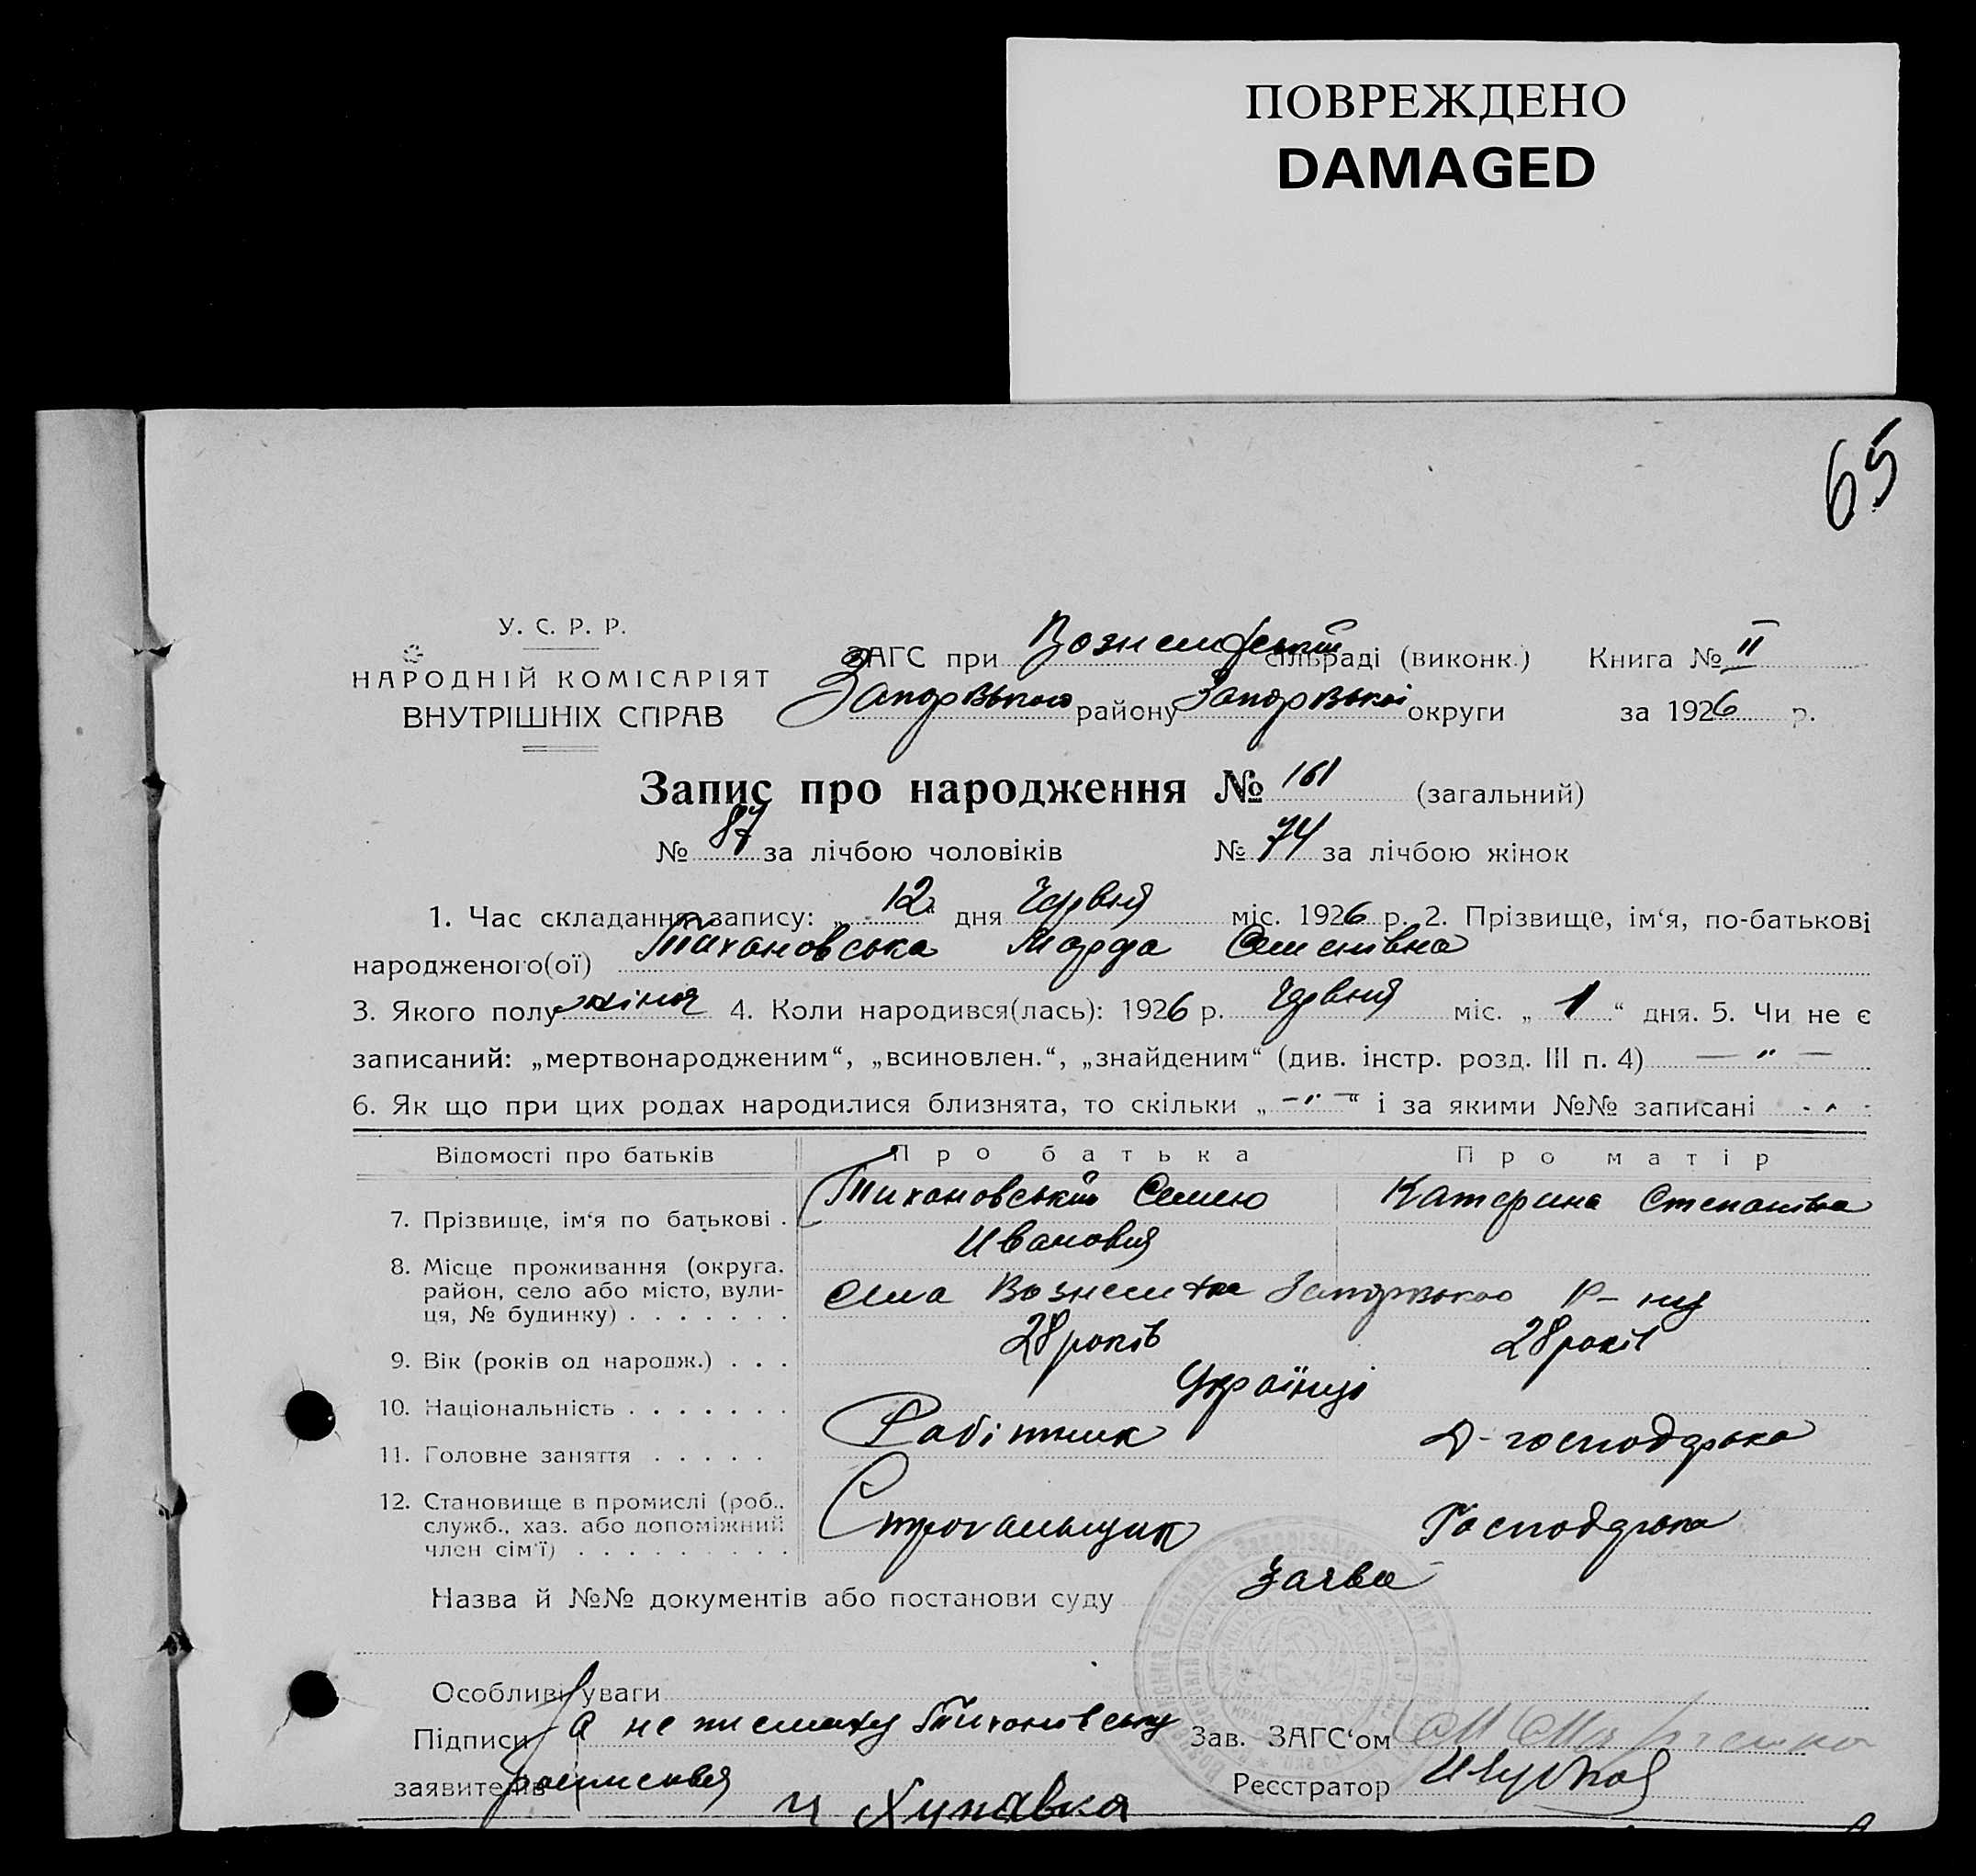 ПОВРЕЖДЕНО
DAMAGED
65
У. С. Р. Р.
НАРОДНІЙ КОМІСАРІЯТ
ВНУТРІШНІХ СПРАВ
ЗАГС при Вознесенській сільраді (виконк.) Книга № II
Запорізького району Запорізької округи за 1926 р.
Запис про народження № 161 (загальний)
№ 87 за лічбою чоловіків № 74 за лічбою жінок
1. Час складання запису: „ 12 " дня Червня міс. 1926 р. 2. Прізвище, ім'я, по-батькові
народженого(ої) Тихановська Марфа Семенівна
3. Якого полу жіноч 4. Коли народився(лась): 1926 р. Червня міс. „ 1 " дня. 5. Чи не є
записаний: „мертвонародженим", „всиновлен.", „знайденим" (див. інстр. розд. III п. 4) — " —
6. Як що при цих родах народилися близнята, то скільки „ — " — " і за якими №№ записані
Відомості про батьків Про батька Про матір
7. Прізвище, ім'я по батькові . Тихановський Семен Катерина Степанівна
Иванович
8. Місце проживання (округа, район, село або місто, вулиця, № будинку) . . . . . . . села Вознесенка Запорізького Р-ну
9. Вік (років од народж.) . . . 28 років 28 років
10. Національність . . . . . . . Українці
11. Головне заняття . . . . . Рабітник Д-господарка
12. Становище в промислі (роб., служб., хаз. або допоміжний член сім'ї) . . . . . . . . . Строгальщик Господарка
Назва й №№ документів або постанови суду Заява
Особливі уваги
Підписи за неписьменну Тихановську Зав. ЗАГС'ом
заявителів росписався Реєстратор